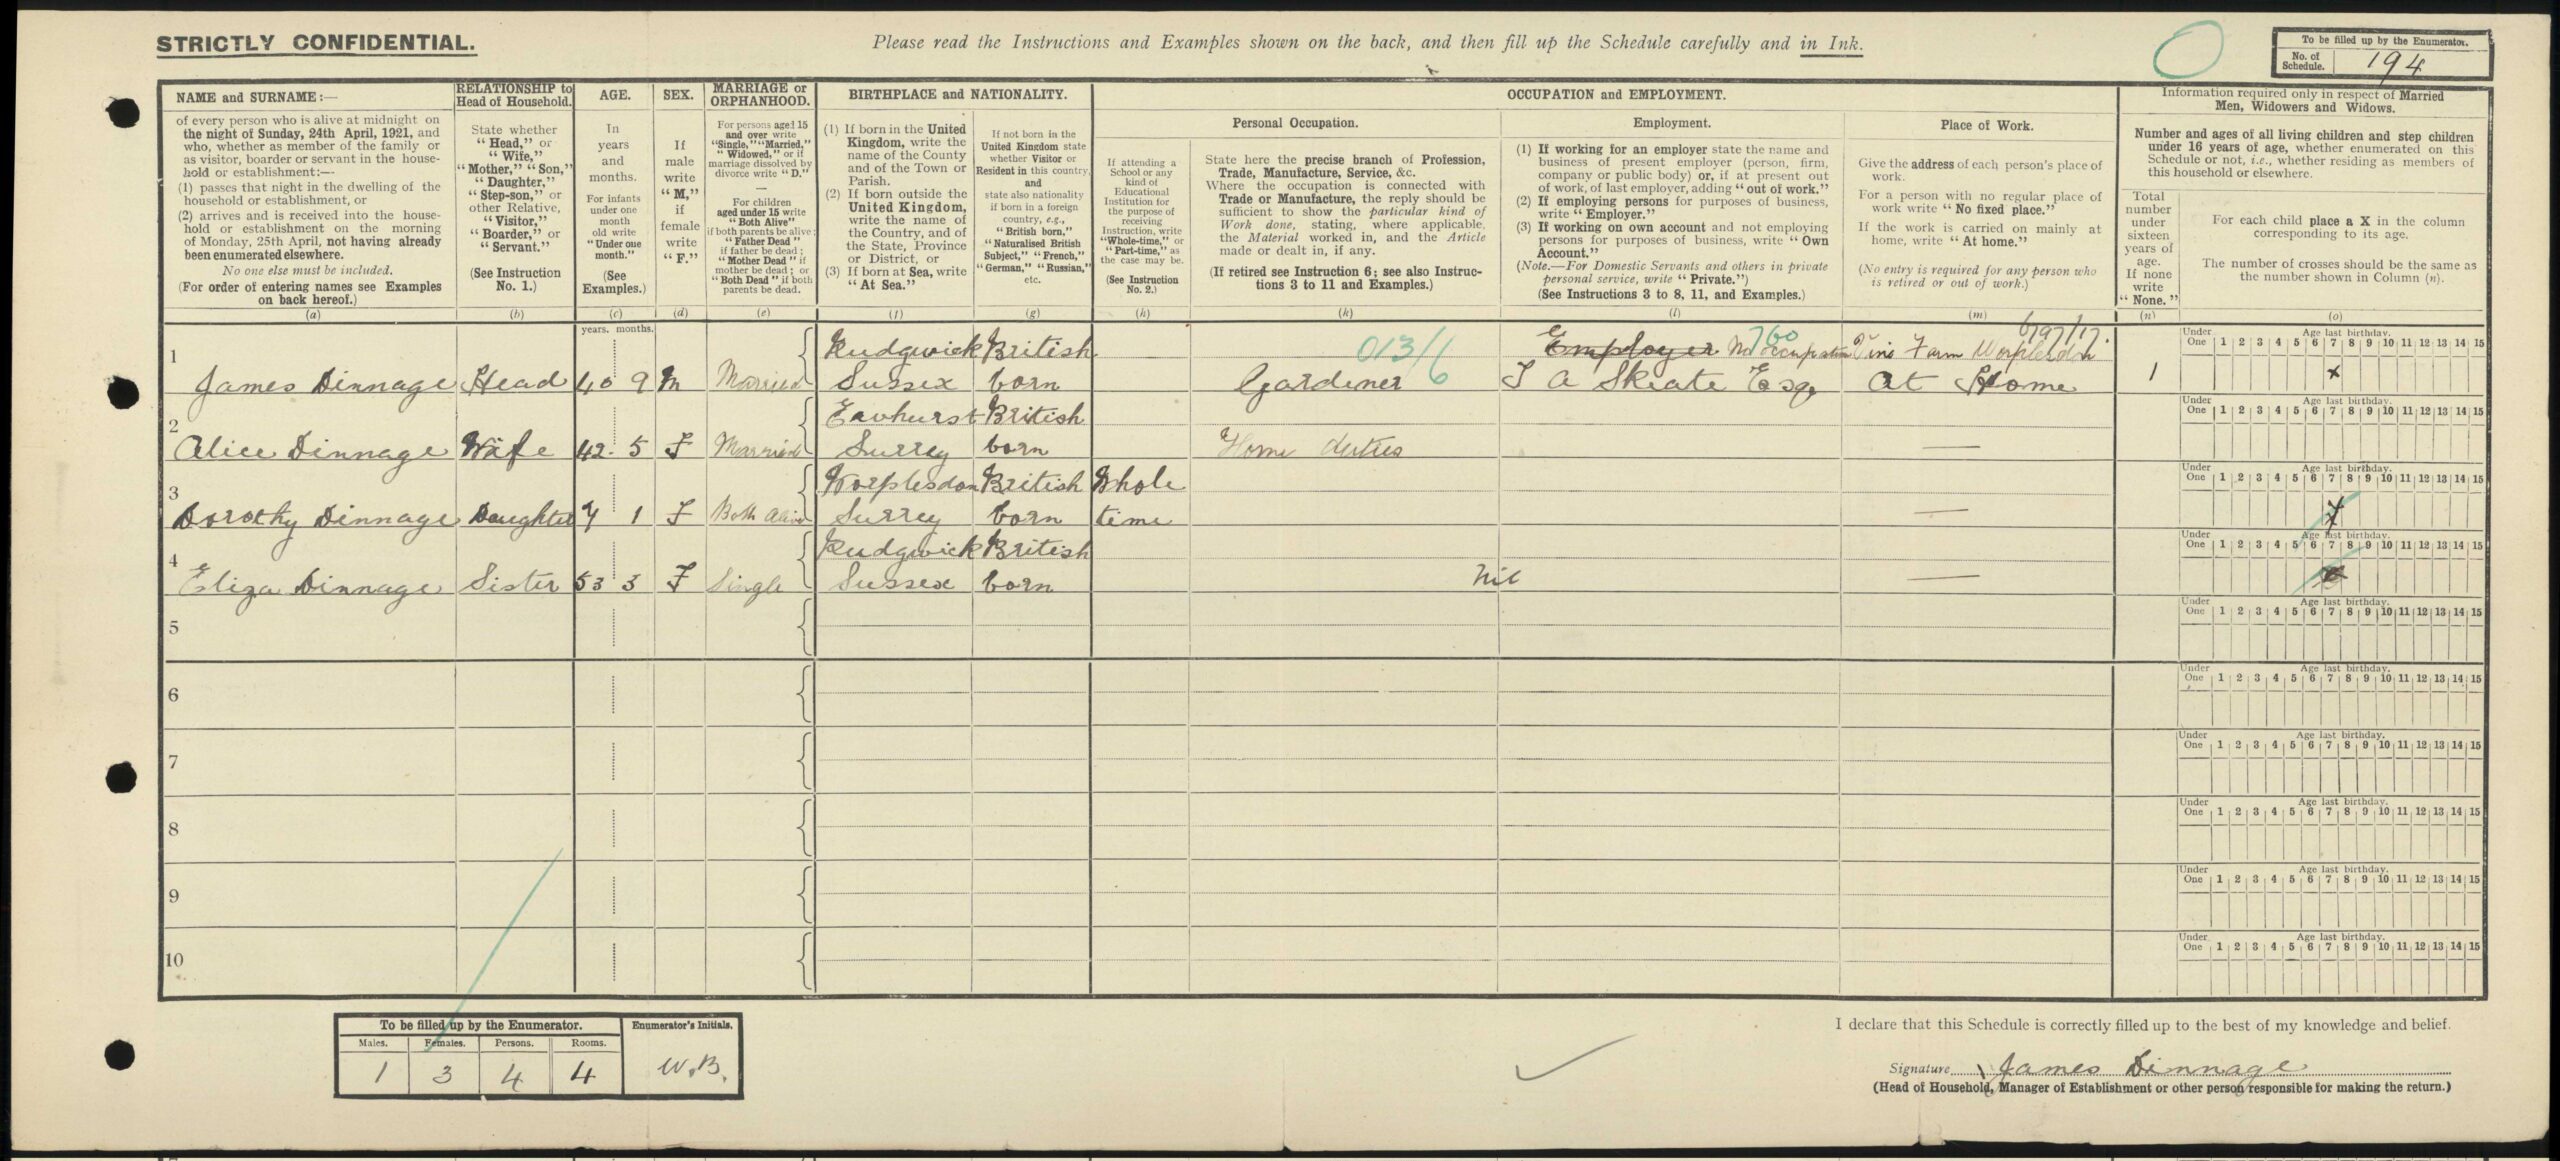 STRICTLY CONFIDENTIAL.
Please read the Instructions and Examples shown on the back, and then fill up the Schedule carefully and in Ink.
To be filled up by the Enumerator.
No. of Schedule. 194
NAME and SURNAME:—
of every person who is alive at midnight on
the night of Sunday, 24th April, 1921, and
who, whether as member of the family or
as visitor, boarder or servant in the house-
hold or establishment:—
(1) passes that night in the dwelling of the
household or establishment, or
(2) arrives and is received into the house-
hold or establishment on the morning
of Monday, 25th April, not having already
been enumerated elsewhere.
No one else must be included.
(For order of entering names see Examples
on back hereof.)
(a)
RELATIONSHIP to
Head of Household.
State whether
"Head," or
"Wife,"
"Mother," "Son,"
"Daughter,"
"Step-son," or
other Relative,
"Visitor,"
"Boarder," or
"Servant."
(See Instruction
No. 1.)
(b)
AGE.
In
years
and
months.
For infants
under one
month
old write
"Under one
month."
(See
Examples.)
(c)
SEX.
If
male
write
"M,"
if
female
write
"F."
(d)
MARRIAGE or
ORPHANHOOD.
For persons aged 15
and over write
"Single," "Married,"
"Widowed," or if
marriage dissolved by
divorce write "D."
—
For children
aged under 15 write
"Both Alive"
if both parents be alive;
"Father Dead"
if father be dead;
"Mother Dead" if
mother be dead; or
"Both Dead" if both
parents be dead.
(e)
BIRTHPLACE and NATIONALITY.
(1) If born in the United
Kingdom, write the
name of the County
and of the Town or
Parish.
(2) If born outside the
United Kingdom,
write the name of
the Country, and of
the State, Province
or District, or
(3) If born at Sea, write
"At Sea."
(f)
If not born in the
United Kingdom state
whether Visitor or
Resident in this country,
and
state also nationality
if born in a foreign
country, e.g.,
"British born,"
"Naturalised British
Subject," "French,"
"German," "Russian,"
etc.
(g)
OCCUPATION and EMPLOYMENT.
If attending a
School or any
kind of
Educational
Institution for
the purpose of
receiving
Instruction, write
"Whole-time," or
"Part-time," as
the case may be.
(See Instruction
No. 2.)
(h)
Personal Occupation.
State here the precise branch of Profession,
Trade, Manufacture, Service, &c.
Where the occupation is connected with
Trade or Manufacture, the reply should be
sufficient to show the particular kind of
Work done, stating, where applicable,
the Material worked in, and the Article
made or dealt in, if any.
(If retired see Instruction 6; see also Instruc-
tions 3 to 11 and Examples.)
(k)
Employment.
(1) If working for an employer state the name and
business of present employer (person, firm,
company or public body) or, if at present out
of work, of last employer, adding "out of work."
(2) If employing persons for purposes of business,
write "Employer."
(3) If working on own account and not employing
persons for purposes of business, write "Own
Account."
(Note.—For Domestic Servants and others in private
personal service, write "Private.")
(See Instructions 3 to 8, 11, and Examples.)
(l)
Place of Work.
Give the address of each person's place of
work.
For a person with no regular place of
work write "No fixed place."
If the work is carried on mainly at
home, write "At home."
(No entry is required for any person who
is retired or out of work.)
(m)
Information required only in respect of Married
Men, Widowers and Widows.
Number and ages of all living children and step children
under 16 years of age, whether enumerated on this
Schedule or not, i.e., whether residing as members of
this household or elsewhere.
Total
number
under
sixteen
years of
age.
If none
write
"None."
(n)
For each child place a X in the column
corresponding to its age.
The number of crosses should be the same as
the number shown in Column (n).
(o)
years. months.
1 Rudgwick British 013/6 Employer No occupation 760 Farm Worplesdon
James Dinnage Head 40 9 M Married Sussex born Gardener Esq At Home 1 x
Under One 1 2 3 4 5 6 7 8 9 10 11 12 13 14 15
Age last birthday.
2 Ewhurst British
Alice Dinnage Wife 42 5 F Married Surrey born Home duties —
Under One 1 2 3 4 5 6 7 8 9 10 11 12 13 14 15
Age last birthday.
3 Worplesdon British Whole
Dorothy Dinnage Daughter 7 1 F Both Alive Surrey born time —
Under One 1 2 3 4 5 6 7 8 9 10 11 12 13 14 15
Age last birthday.
4 Rudgwick British
Eliza Dinnage Sister 53 3 F Single Sussex born Nil —
Under One 1 2 3 4 5 6 7 8 9 10 11 12 13 14 15
Age last birthday.
5
Under One 1 2 3 4 5 6 7 8 9 10 11 12 13 14 15
Age last birthday.
6
Under One 1 2 3 4 5 6 7 8 9 10 11 12 13 14 15
Age last birthday.
7
Under One 1 2 3 4 5 6 7 8 9 10 11 12 13 14 15
Age last birthday.
8
Under One 1 2 3 4 5 6 7 8 9 10 11 12 13 14 15
Age last birthday.
9
Under One 1 2 3 4 5 6 7 8 9 10 11 12 13 14 15
Age last birthday.
10
Under One 1 2 3 4 5 6 7 8 9 10 11 12 13 14 15
Age last birthday.
To be filled up by the Enumerator.
Enumerator's Initials.
Males. Females. Persons. Rooms.
1 3 4 4 W.B.
I declare that this Schedule is correctly filled up to the best of my knowledge and belief.
Signature James Dinnage
(Head of Household, Manager of Establishment or other person responsible for making the return.)